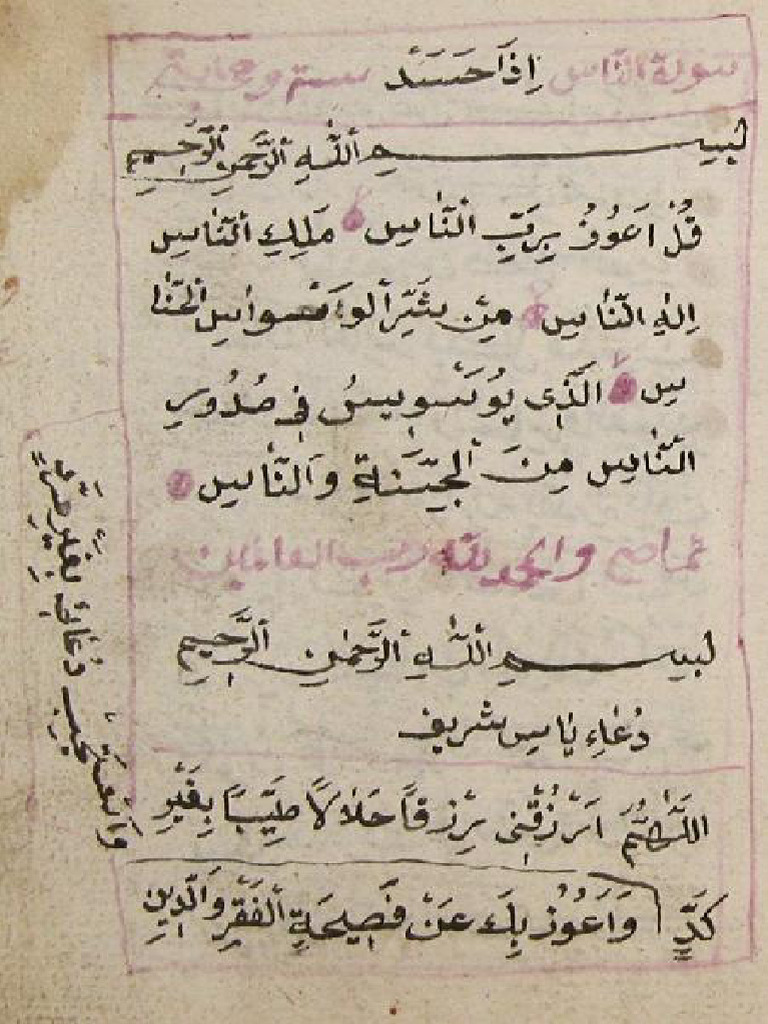 إِذَا حَسَدَ سورة الناس
بسم اللّٰهِ الرَّحْمٰنِ الرَّحِيمِ
قُلْ اَعُوذُ بِرَبِّ النَّاسِ مَلِكِ النَّاسِ
اِلٰهِ النَّاسِ مِنْ شَرِّ الْوَسْوَاسِ الْخَنَّا
سِ الَّذِى يُوَسْوِسُ فِى صُدُورِ
النَّاسِ مِنَ الْجِنَّةِ وَالنَّاسِ
والحمد لله رب العالمين
بسم اللّٰهِ الرَّحْمٰنِ الرَّحِيمِ
دُعَاءِ يَاسِ شريف
اَللّٰهُمَّ ارْزُقْنِى رِزْقًا حَلَالًا طَيِّبًا بِغَيْرِ
كَدٍّ وَاَعُوذُ بِكَ عَنْ فَضِيحَةِ الْفَقْرِ وَالدَّيْنِ